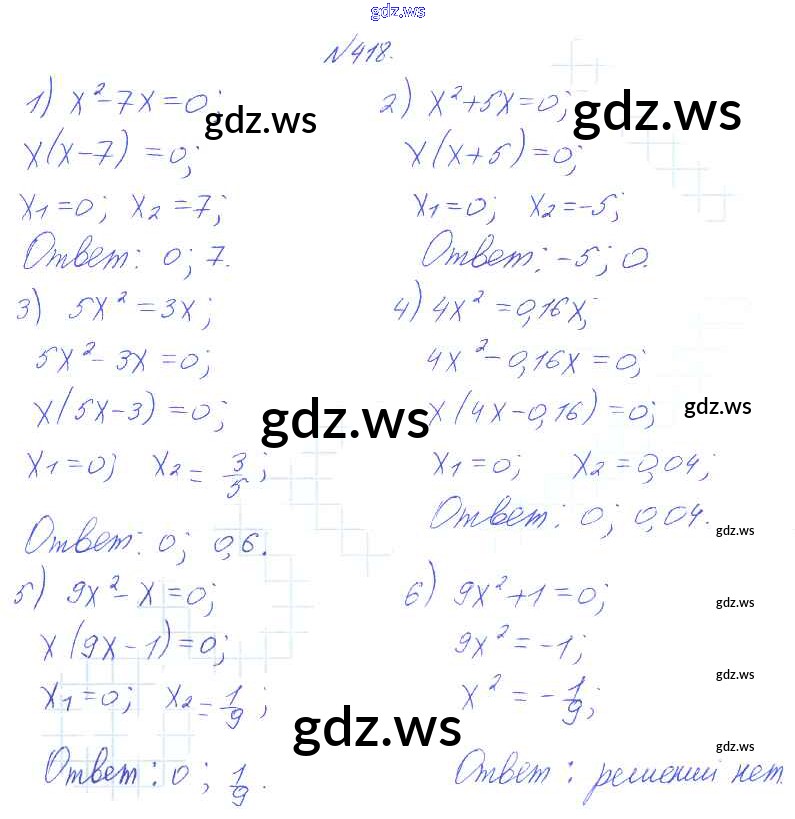 gdz.ws
№418.
1) x²-7x=0;
x(x-7)=0;
x₁=0; x₂=7;
Ответ: 0; 7.
gdz.ws
2) x²+5x=0;
x(x+5)=0;
x₁=0; x₂=-5;
Ответ: -5; 0.
gdz.ws
3) 5x²=3x;
5x²-3x=0;
x(5x-3)=0;
x₁=0; x₂=3/5;
Ответ: 0; 0,6.
gdz.ws
4) 4x²=0,16x;
4x²-0,16x=0;
x(4x-0,16)=0;
x₁=0; x₂=0,04;
Ответ: 0; 0,04.
gdz.ws
gdz.ws
5) 9x²-x=0;
x(9x-1)=0;
x₁=0; x₂=1/9;
Ответ: 0; 1/9.
gdz.ws
6) 9x²+1=0;
9x²=-1;
x²=-1/9;
Ответ: решений нет.
gdz.ws
gdz.ws
gdz.ws